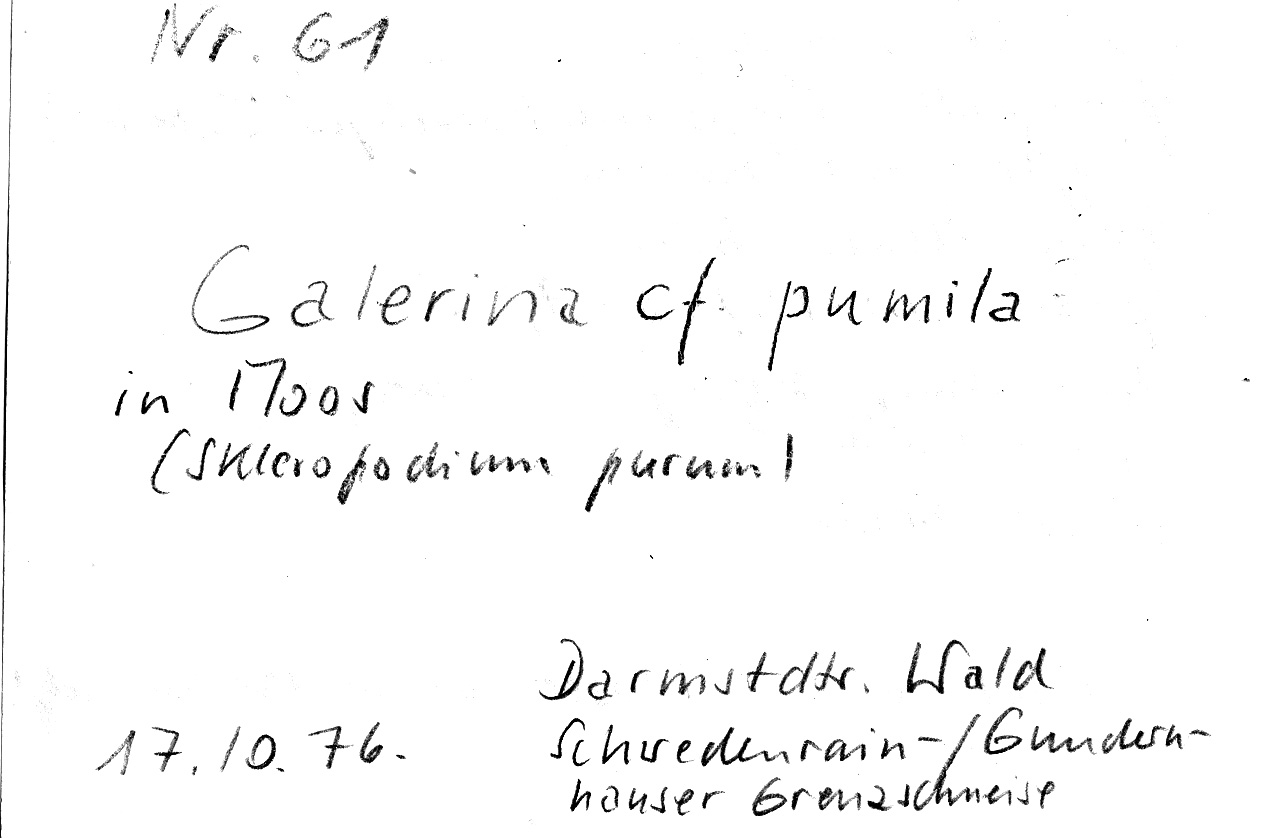 Nr. 61
Galerina cf. pumila
in Moos
(Skleropodium purum)
Darmstdtr. Wald
17.10.76. Schwedenrain-/Gundern-
hauser Grenzschneise